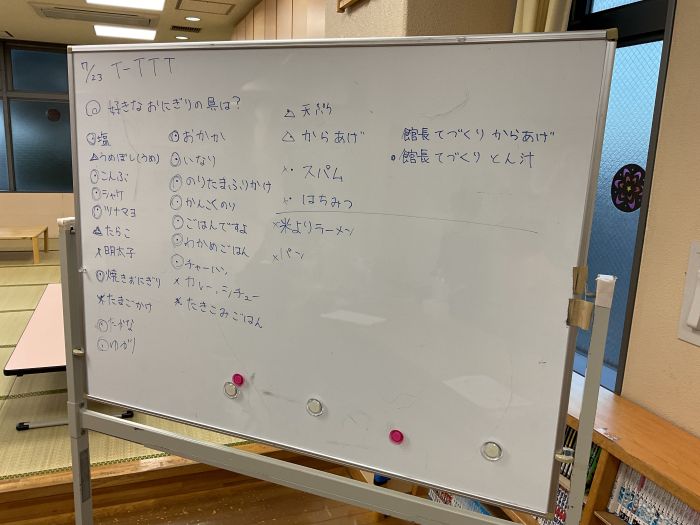 7/23 T-TTT
Q 好きなおにぎりの具は?
◎塩
△うめぼし(うめ)
◎こんぶ
◎シャケ
◎ツナマヨ
△たらこ
×明太子
◎焼きおにぎり
×たまごかけ
◎たかな
◎ゆかり
◎おかか
◎いなり
◎のりたまふりかけ
◎かんこくのり
◎ごはんですよ
◎わかめごはん
◎チャーハン
×カレー、シチュー
×たきこみごはん
△天ぷら
△からあげ
スパム
はちみつ
×米よりラーメン
×パン
館長てづくりからあげ
●館長てづくりとん汁